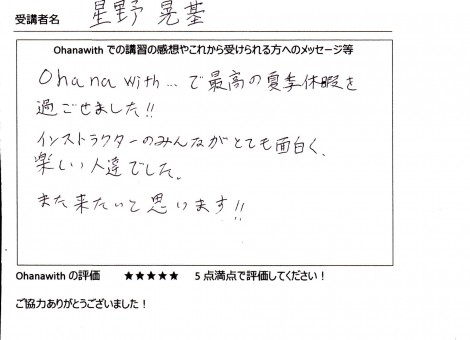 受講者名 星野 晃基
Ohanawith での講習の感想やこれから受けられる方へのメッセージ等
Ohana with... で最高の夏季休暇を
過ごせました!!
インストラクターのみんながとても面白く、
楽しい人達でした。
また来たいと思います!!
Ohanawith の評価 ★★★★★ 5点満点で評価してください!
ご協力ありがとうございました!